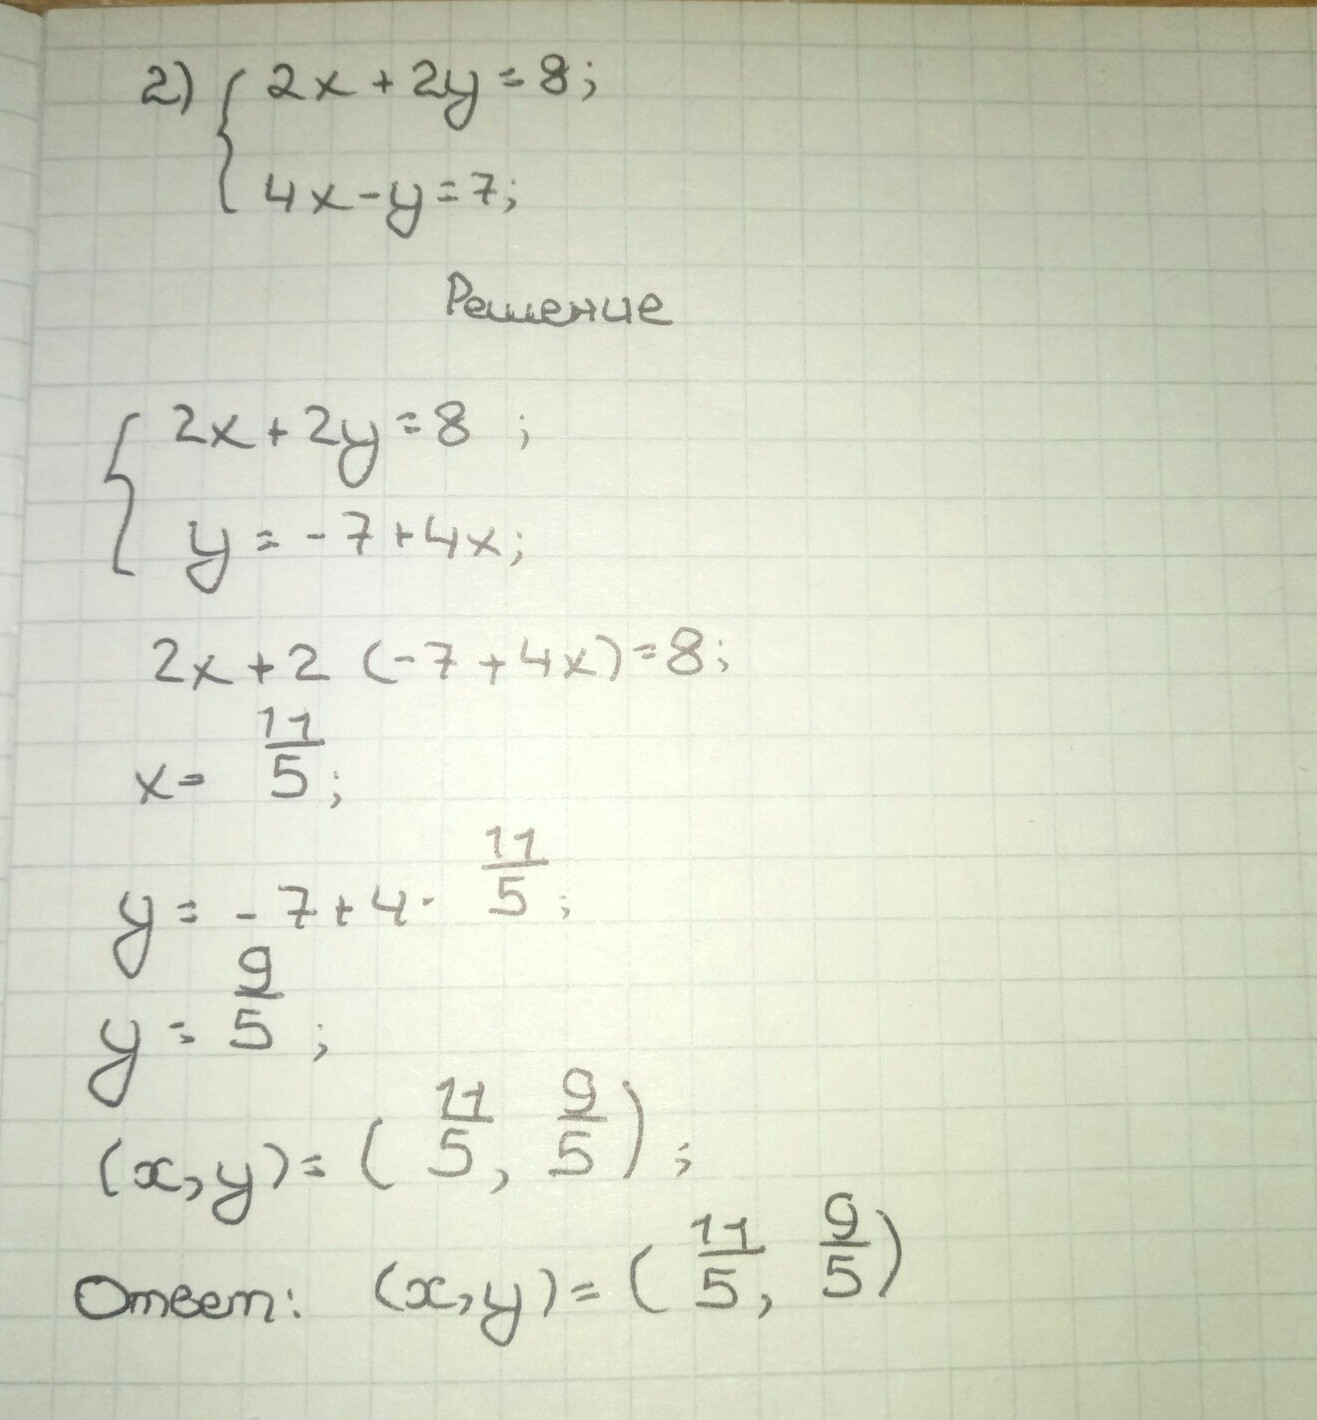 2) { 2x + 2y = 8;
4x - y = 7;
Решение
{ 2x + 2y = 8 ;
y = -7 + 4x;
2x + 2 (-7 + 4x) = 8;
x = 11/5;
y = -7 + 4 · 11/5;
y = 9/5;
(x, y) = (11/5, 9/5);
Ответ: (x, y) = (11/5, 9/5)